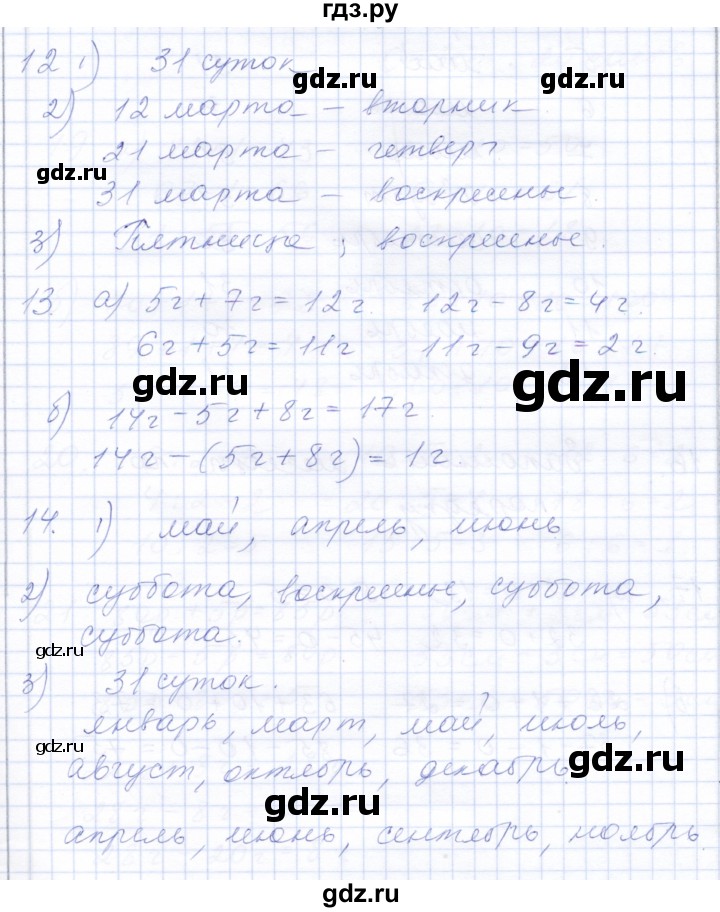 гдз.ру
12 1) 31 суток
gdz.ru
2) 12 марта – вторник.
gdz.ru
21 марта – четверг
gdz.ru
31 марта – воскресенье.
3) Пятница, воскресенье.
13. а) 5г + 7г = 12г. 12г – 8г = 4г.
6г + 5г = 11г 11г – 9г = 2г.
gdz.ru
gdz.ru
б) 14г – 5г + 8г = 17г.
14г – (5г + 8г) = 1г.
14. 1) май, апрель, июнь
2) суббота, воскресенье, суббота,
суббота.
gdz.ru
3) 31 суток.
январь, март, май, июль,
gdz.ru
август, октябрь, декабрь.
gdz.ru
gdz.ru
апрель, июнь, сентябрь, ноябрь
gdz.ru